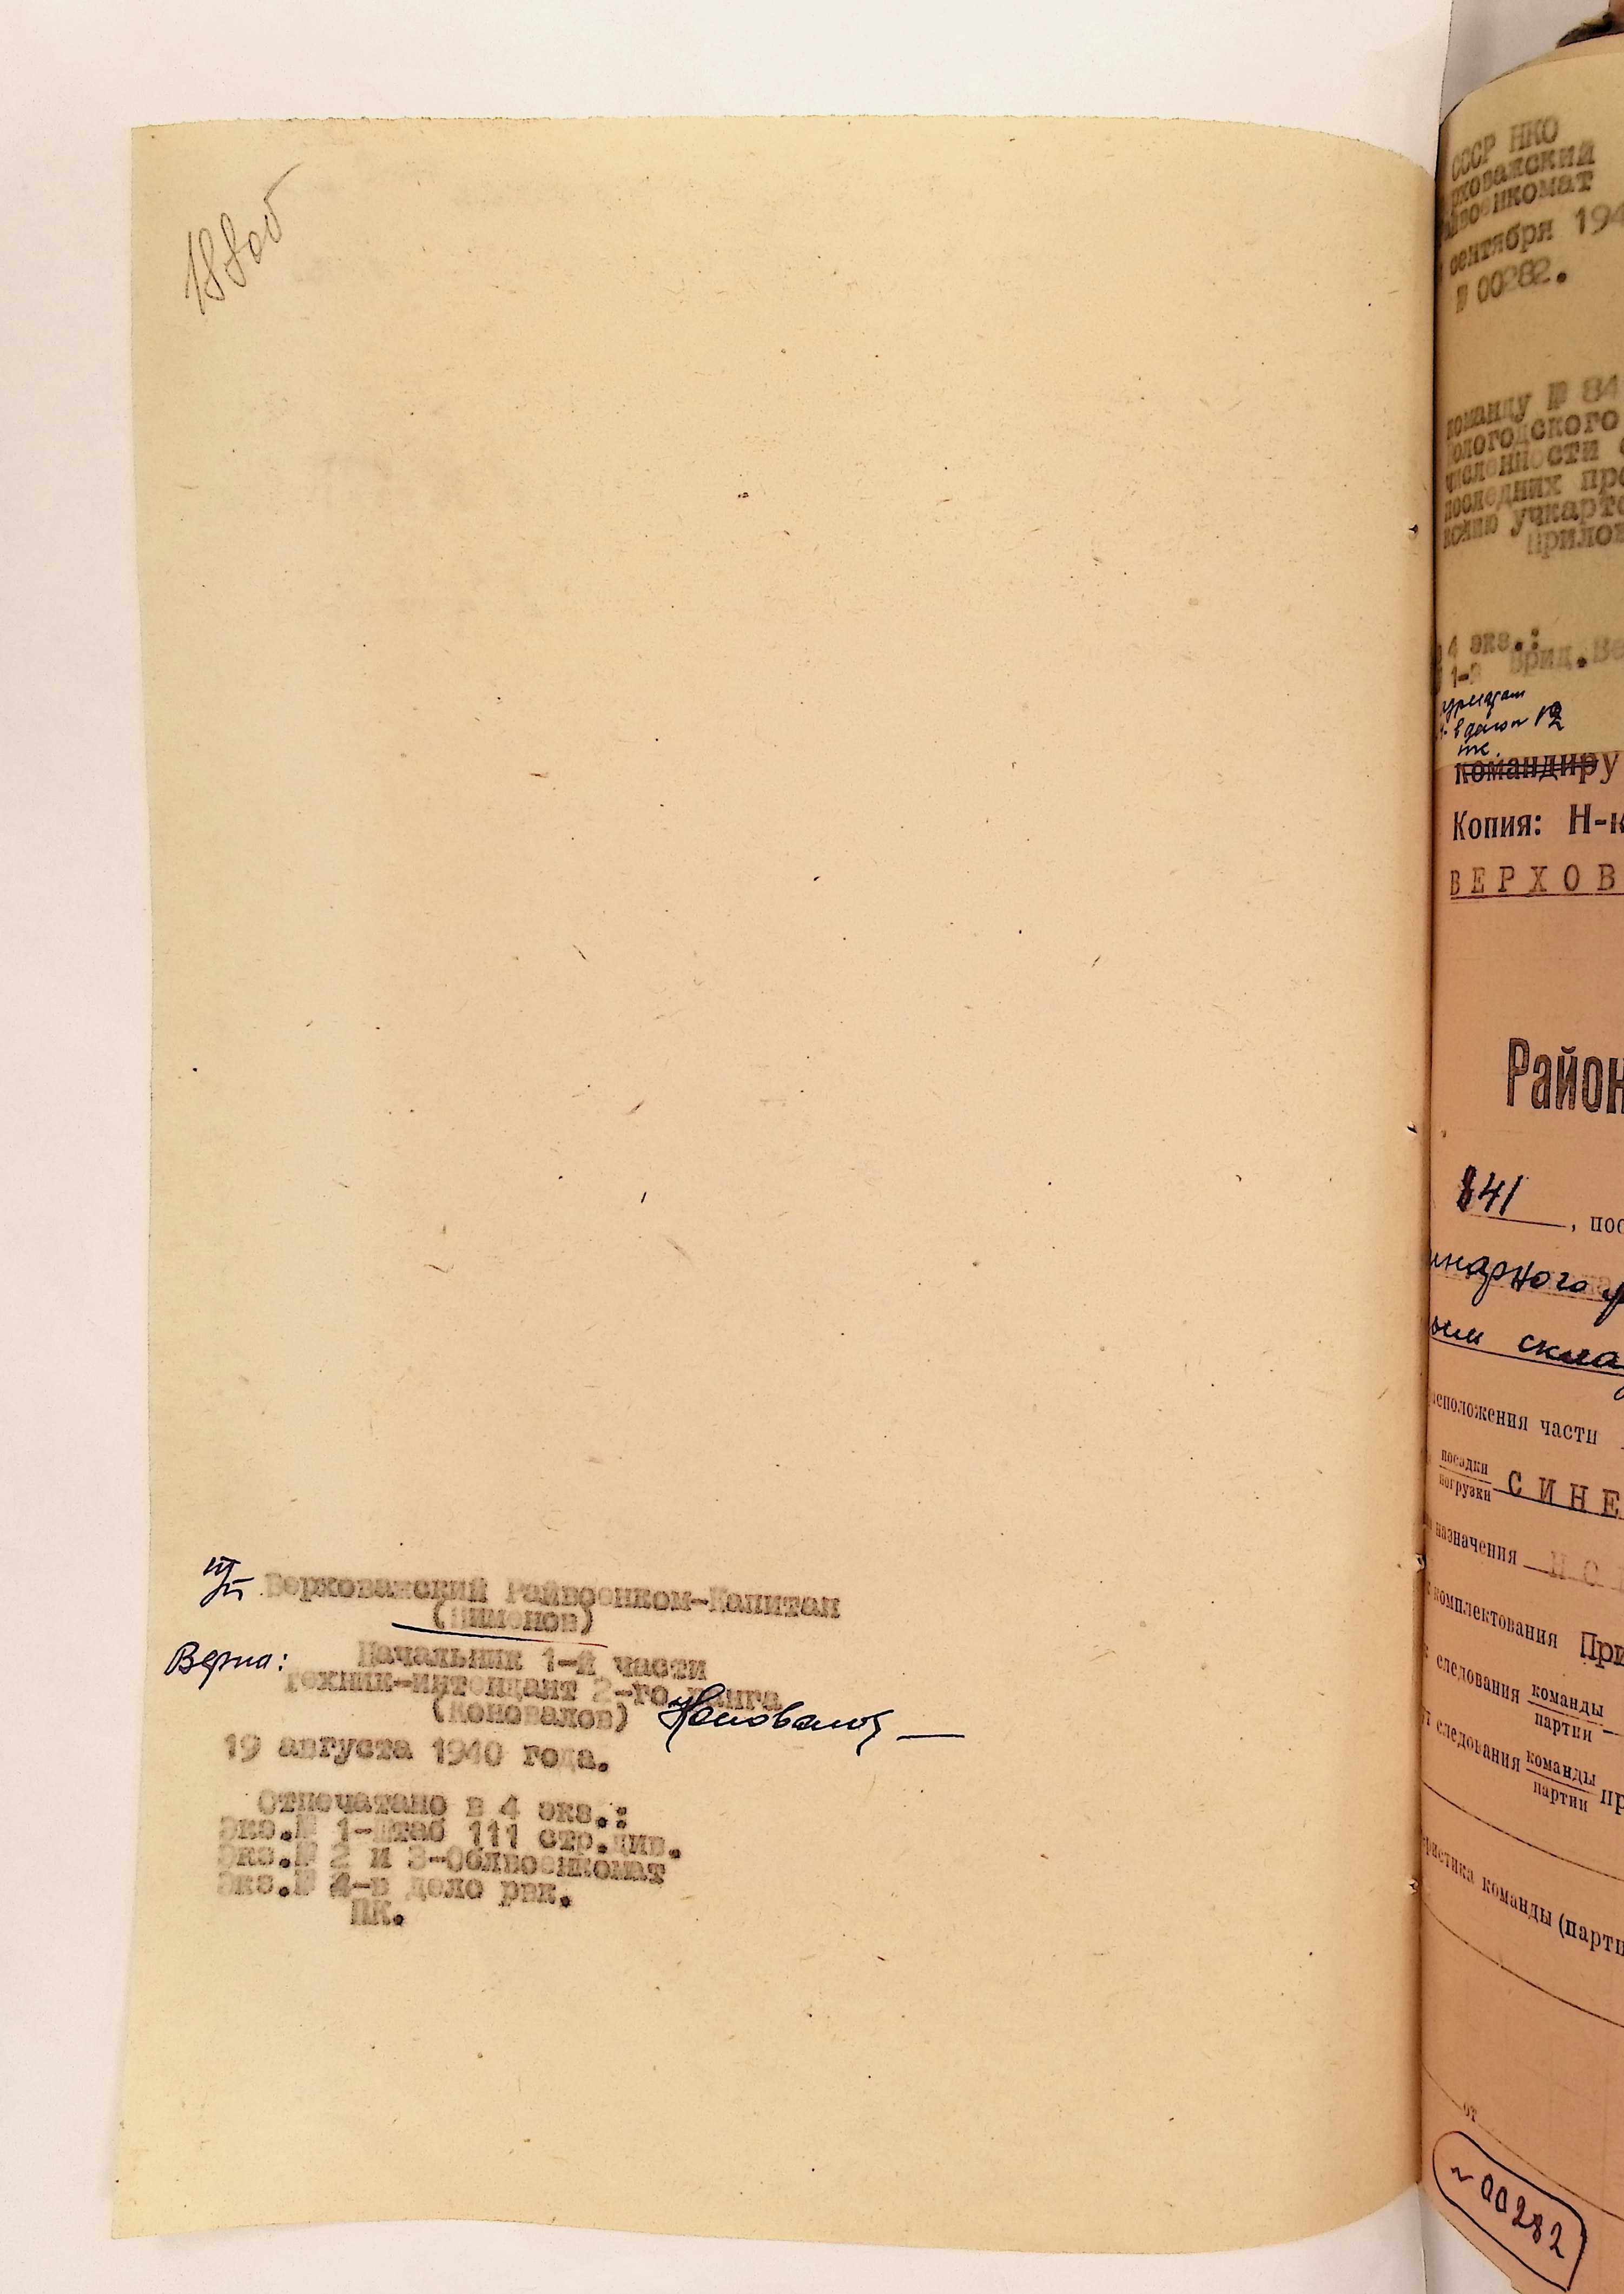 188об
п/п Верховажский Райвоенком-Капитан
(Пименов)
Верно: Начальник 1-й части
техник-интендант 2-го ранга
(Коновалов) Коновалов
19 августа 1940 года.
Отпечатано в 4 экз.:
Экз.№ 1-Штаб 111 стр.див.
Экз.№ 2 и 3-Облвоенкомат
Экз.№ 4-в дело рвк.
ПК.
СССР НКО
рховажский
айвоенкомат
сентября 194
№ 00282.
команду № 84
Вологодского
численности
последних пр
учкарт
Прилож
4 экз.:
1-
Врид.Ве
Командиру
Копия: Н-к
ВЕРХОВ
Район
841 , пос
инарного
ым скла
асположения части
посадки
погрузки СИНЕ
назначения
комплектования При
следования команды
партии
следования команды
партии пр
еристика команды (парти
от
№ 00282